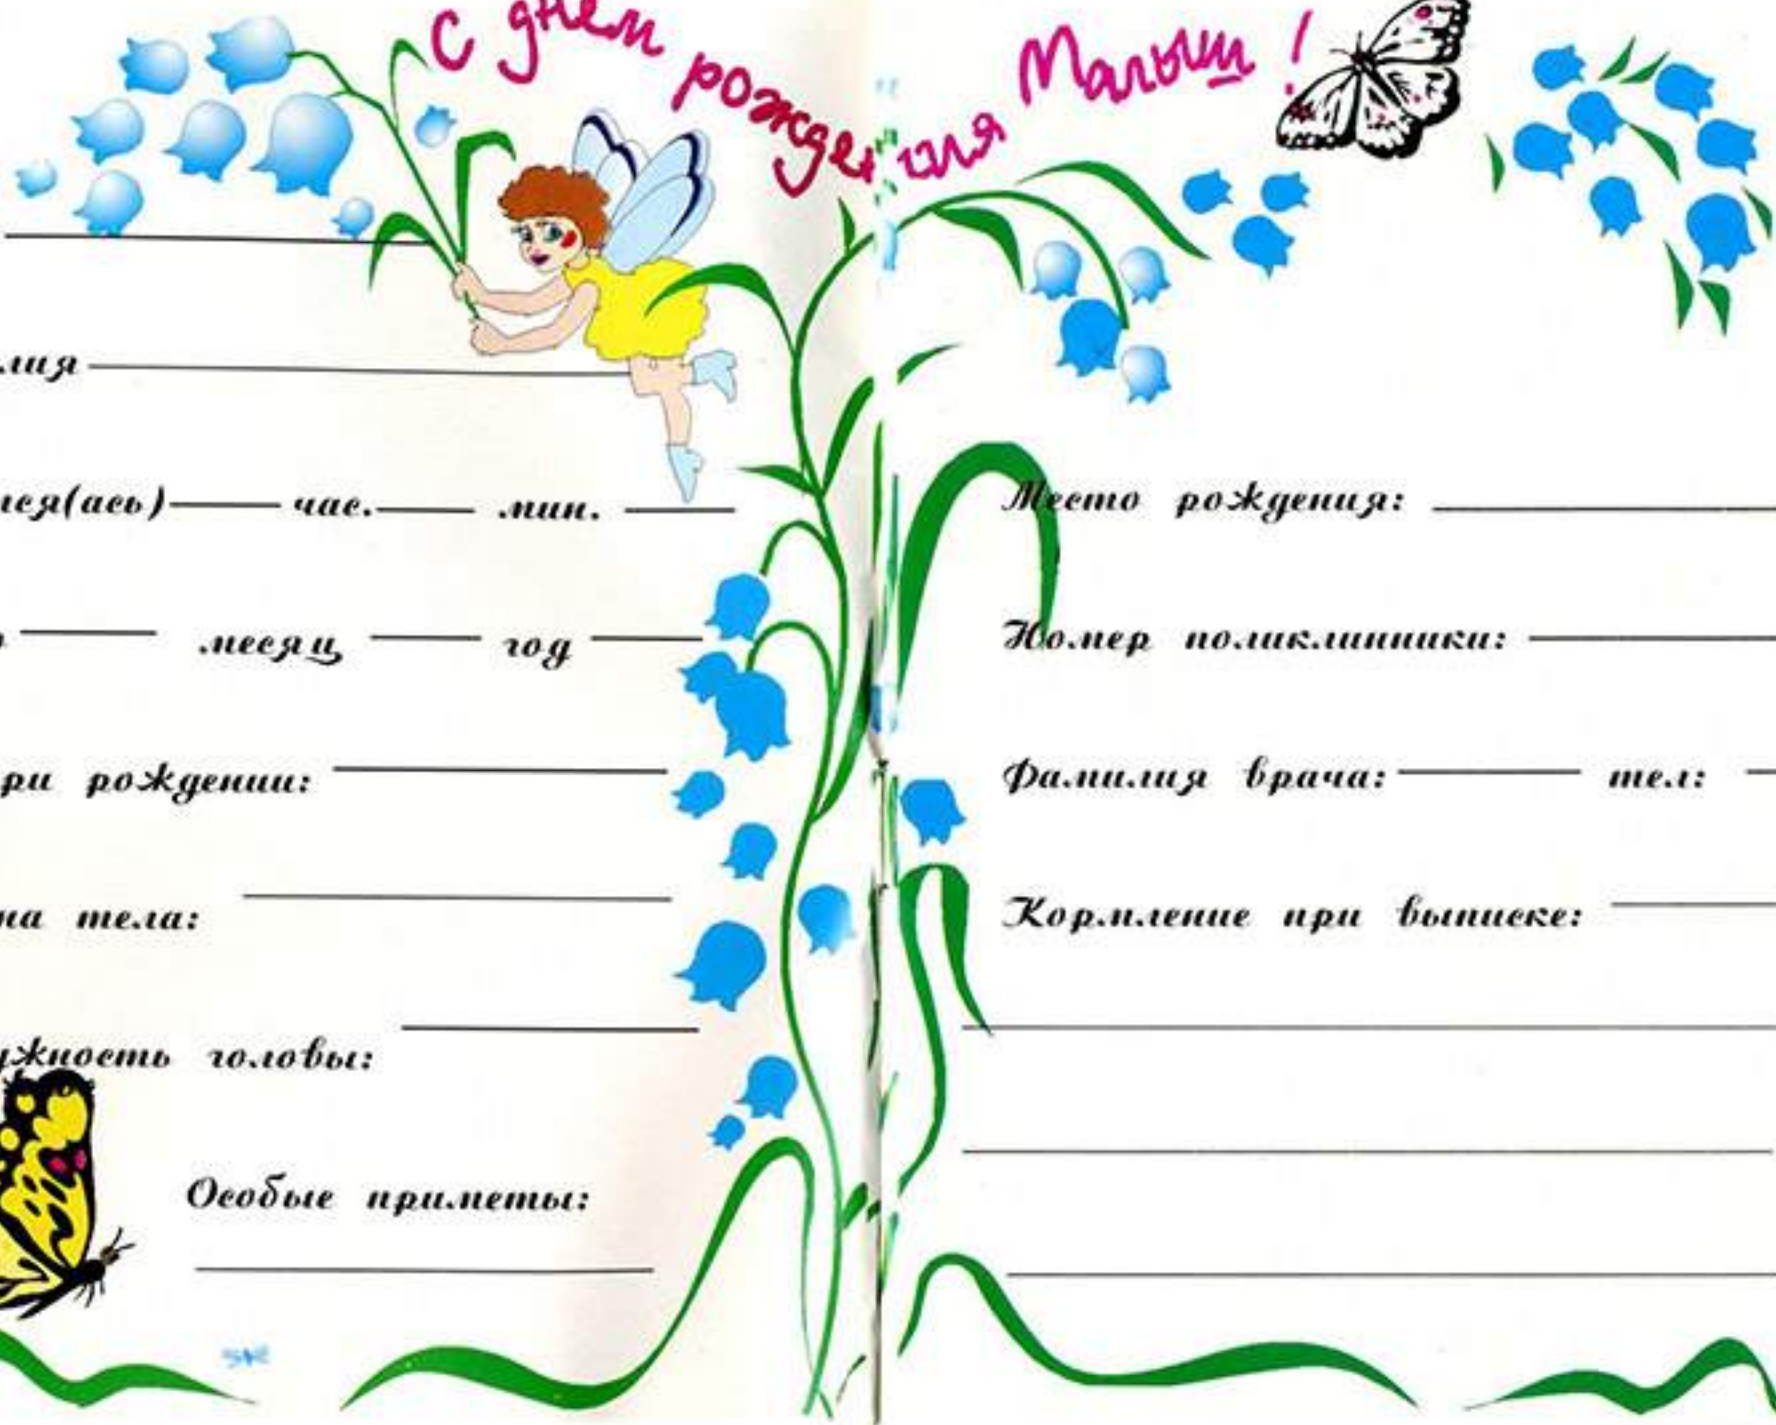 С днем рождения Малыш!
лия
лся(ась) час. мин.
месяц год
ри рождении:
на тела:
ужность головы:
Особые приметы:
Место рождения:
Номер поликлинники:
Фамилия врача: тел:
Кормление при выписке: